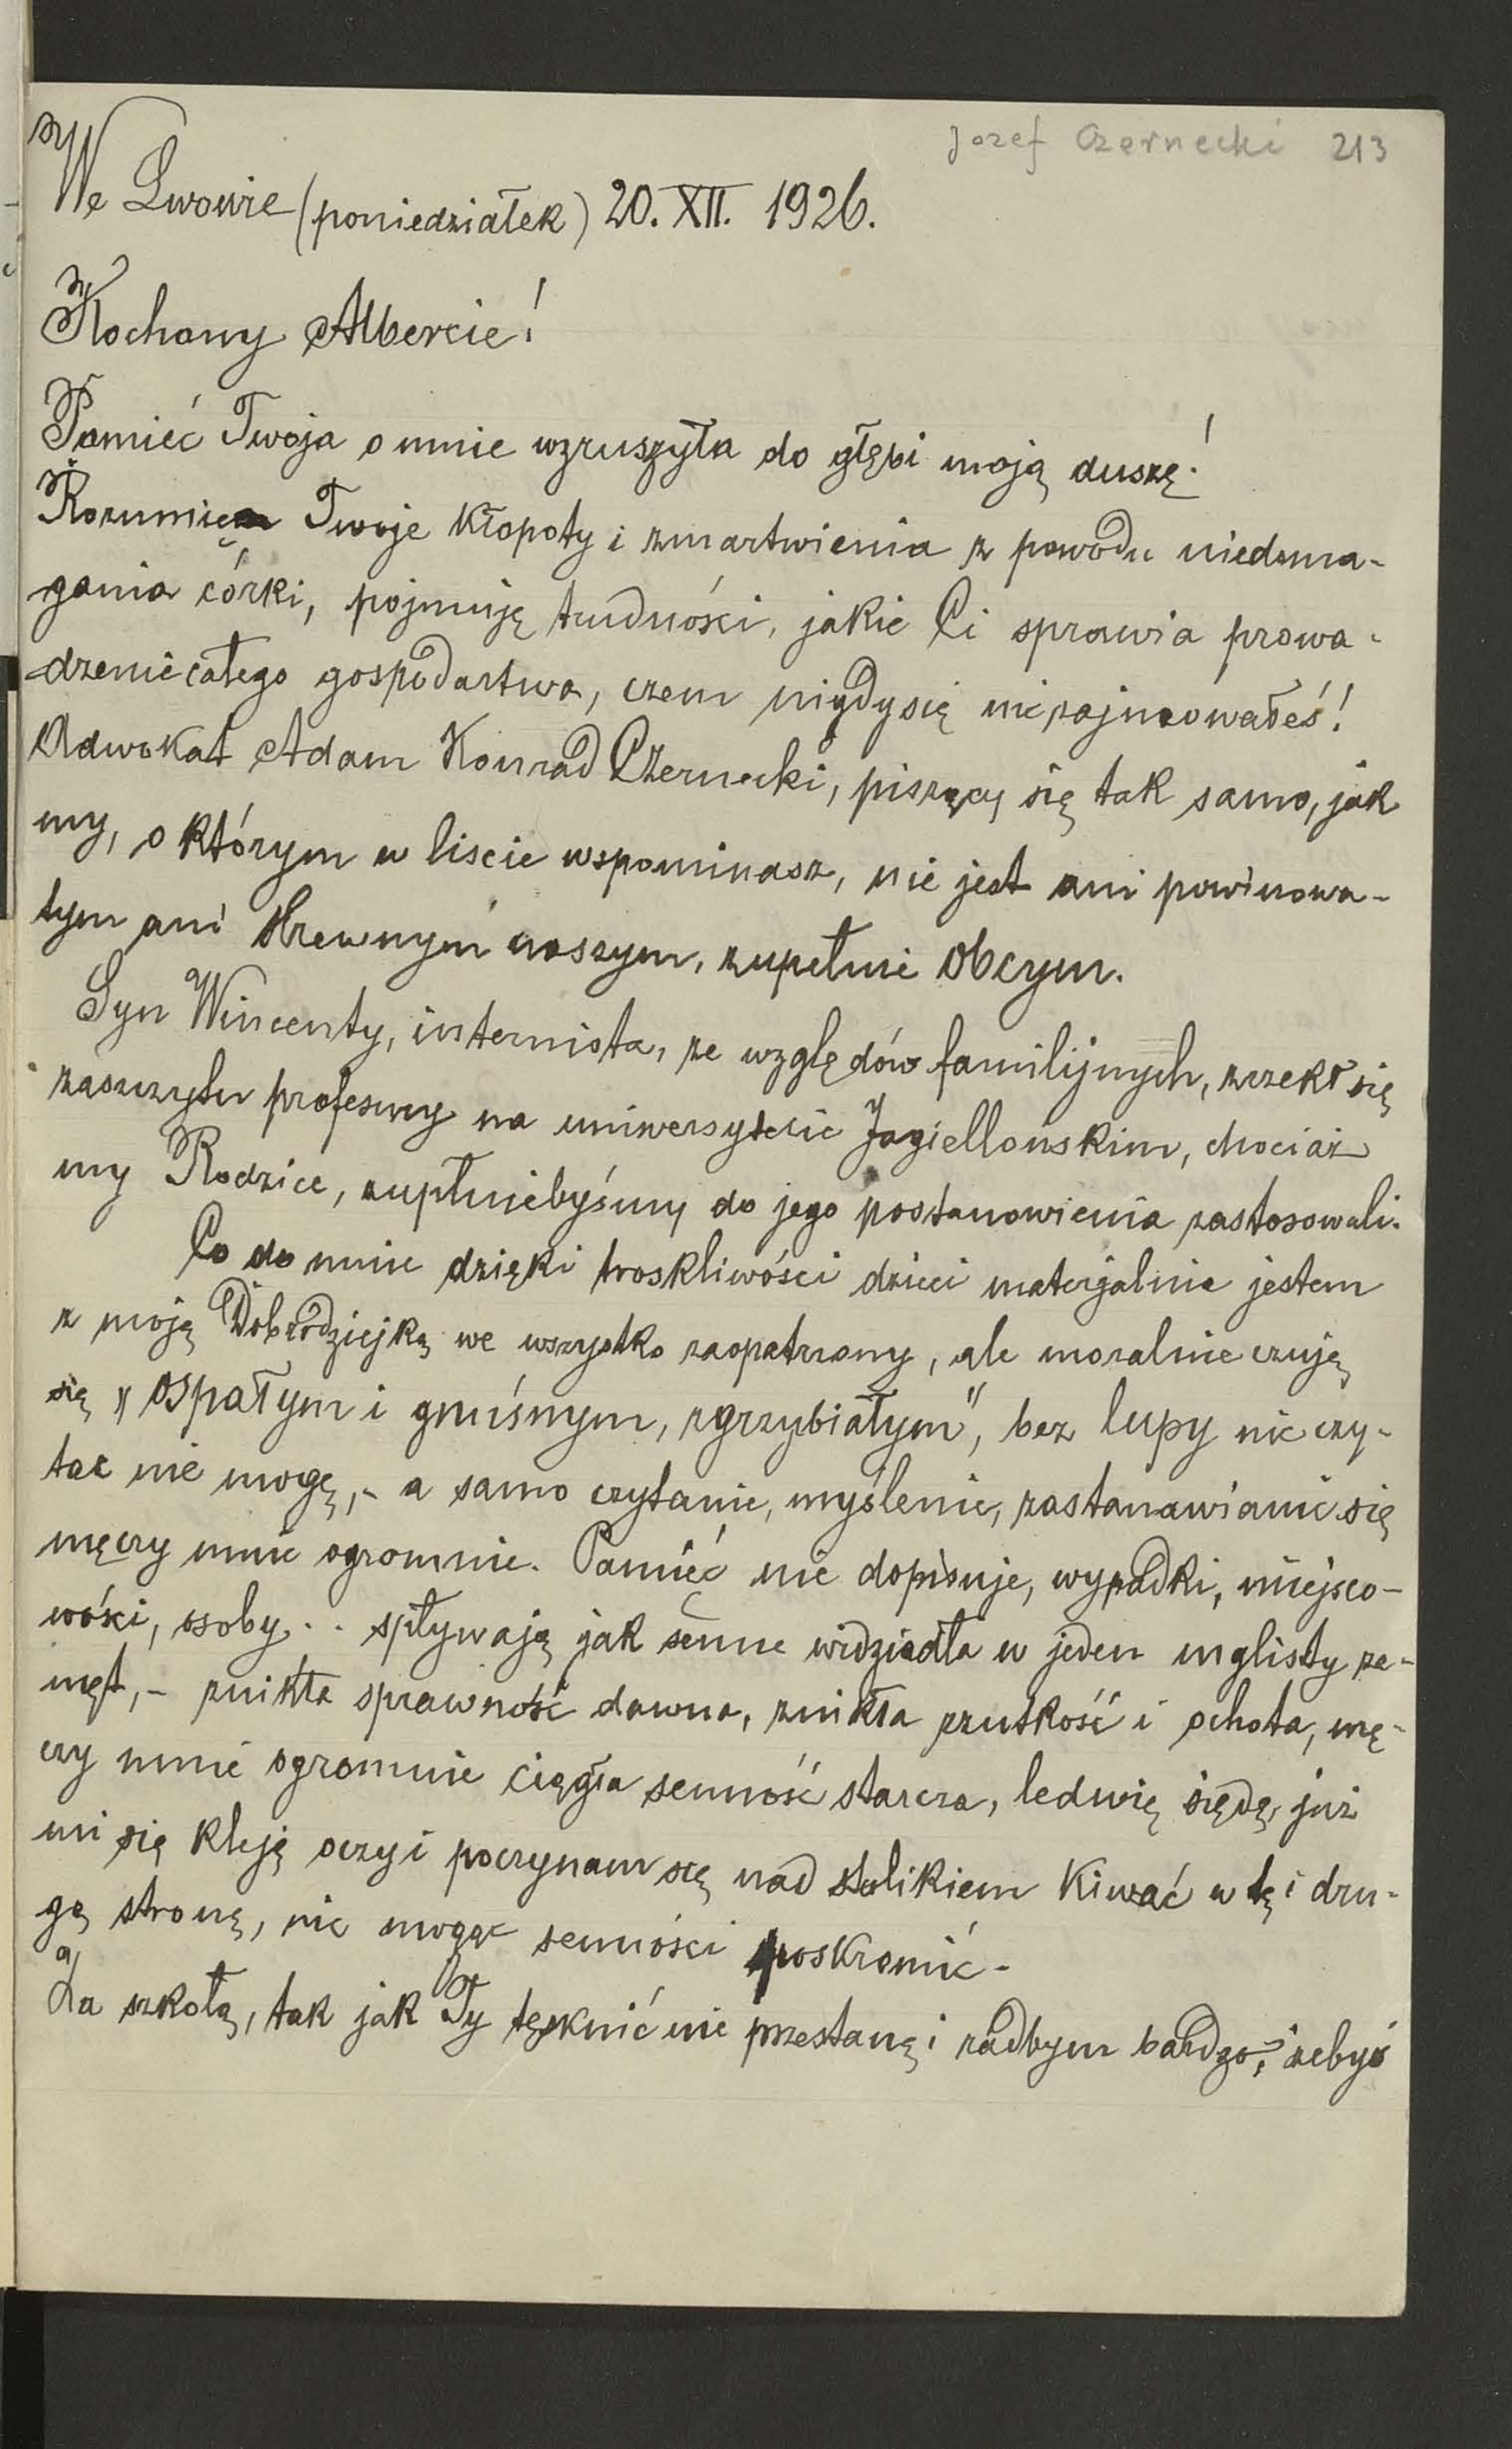 Jozef Czernecki 213
We Lwowie (poniedziałek) 20. XII. 1926.
Kochany Albercie!
Pamięć Twoja o mnie wzruszyła do głębi moją duszę!
Rozumię Twoje kłopoty i zmartwienia z powodu niedoma-
gania córki, pojmuję trudności, jakie Ci sprawia prowa-
dzenie całego gospodarstwa, czem nigdy się nie zajmowałeś!
Adwokat Adam Konrad Czernecki, piszący się tak samo, jak
my, o którym w liscie wspominasz, nie jest ani powinowa-
tym ani krewnym naszym, zupełnie obcym.
Syn Wincenty, internista, ze względów familijnych, zrzekł się
zaszczytu profesury na uniwersytecie Jagiellonskim, chociaż
my Rodzice, zupłniebyśmy do jego postanowienia zastosowali.
Co do mnie dzięki troskliwości dzieci materjalnie jestem
z moją Dobrodziejką we wszystko zaopatrzony, ale moralnie czuję
się „ospałym i gnuśnym, zgrzybiałym", bez lupy nic czy-
tac nie mogę,- a samo czytanie, myślenie, zastanawianie się
męczy mnie ogromnie. Pamięć nie dopisuje, wypadki, miejsco-
wości, osoby .. spływają jak senne widziadła w jeden mglisty za-
męt,- znikła sprawność dawna, znikła rzutkość i ochota, mę-
czy mnie ogromnie ciągła senność starcza, ledwię siędę, już
mi się kleją oczy i poczynam się nad stolikiem kiwać w tę i dru-
gą stronę, nie mogąc senności poskromić.
Za szkołą, tak jak Ty tęsknić nie przestanę i radbym bardzo, żebyś